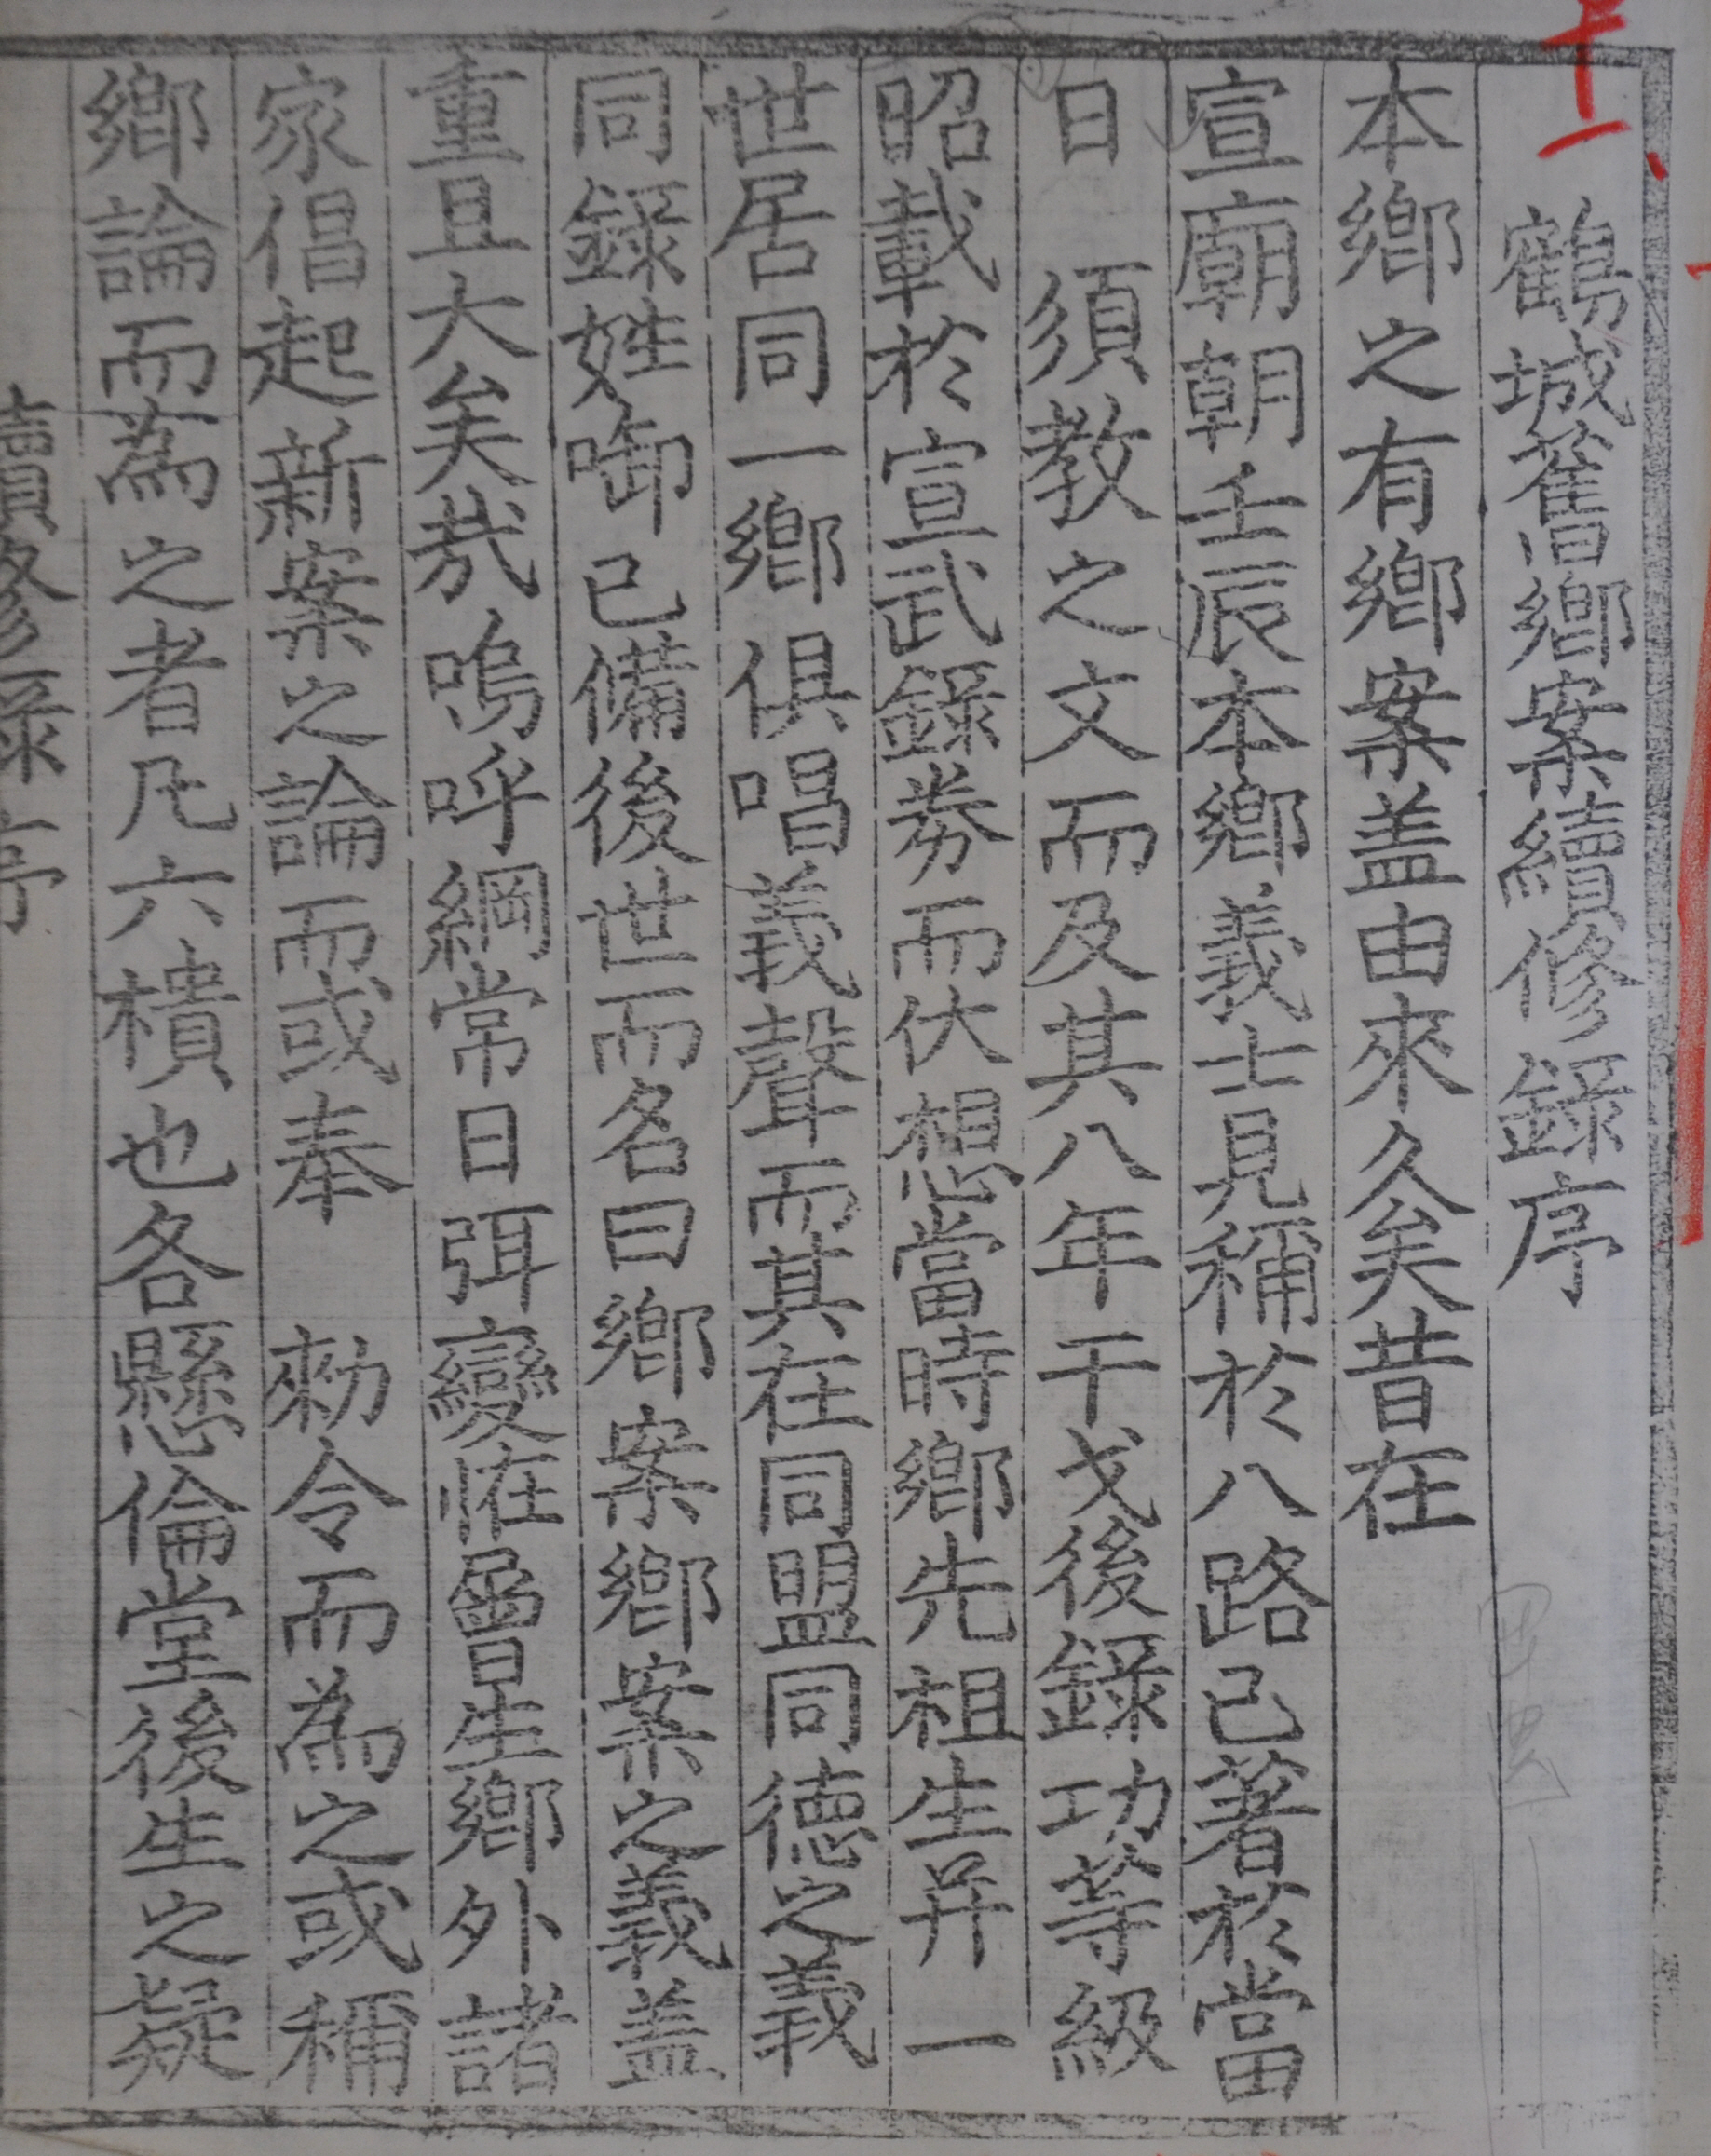 鶴城舊鄉案續修錄序
本鄉之有鄉案盖由來久矣昔在
宣廟朝壬辰本鄉義士見稱於八路已著於當
日 須教之文而及其八年干戈後錄功等級
昭載於宣武錄券而伏想當時鄉先祖生并一
世居同一鄉俱唱義聲而其在同盟同德之義
同錄姓啣已備後世而名曰鄉案鄉案之義盖
重且大矣哉嗚呼綱常日弭變恠層生鄉外諸
家倡起新案之論而或奉 勑令而為之或稱
鄉論而為之者凡六樻也各懸倫堂後生之疑
續修錄序